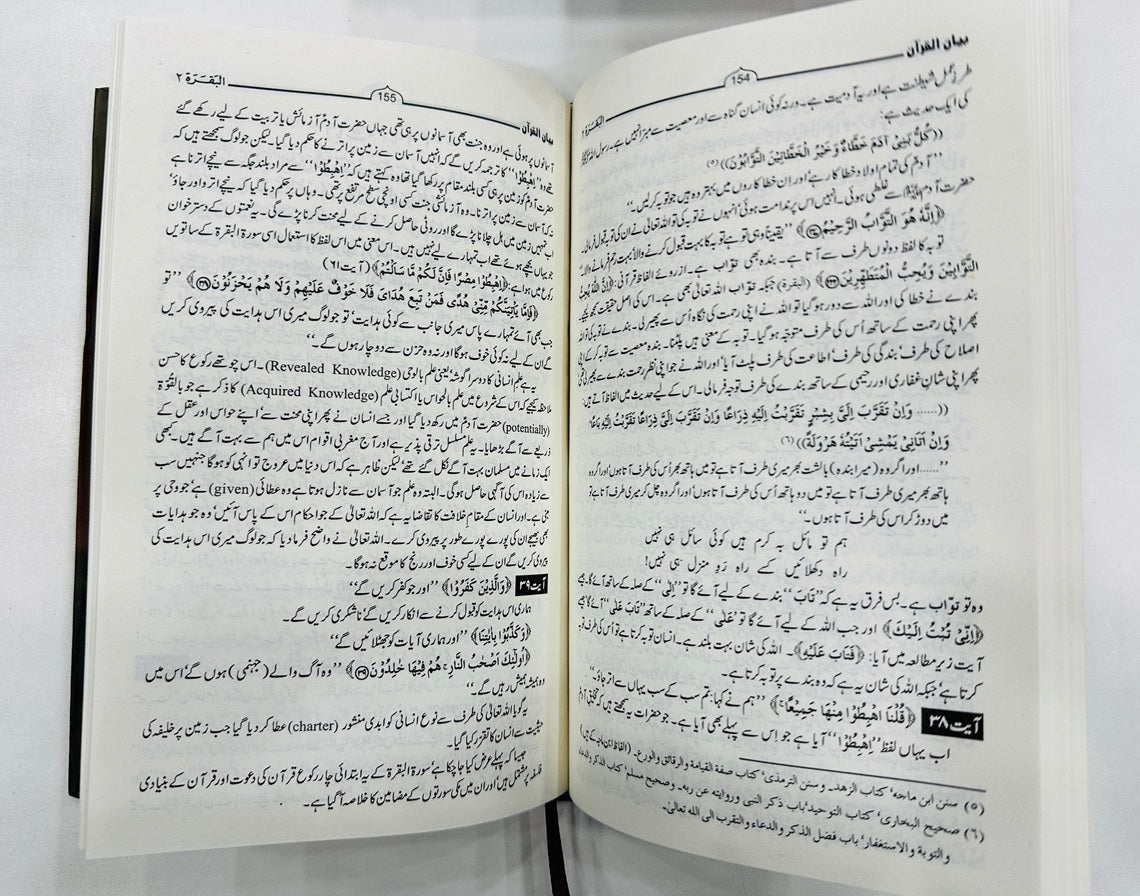 بیان القرآن
154
البَقَرَة ۲
طرزِ عمل شیطنت ہے اور یہ آدمیت ہے۔ ورنہ کوئی انسان گناہ سے اور معصیت سے مبرّا نہیں ہے۔ رسول اللہ ﷺ
کی ایک حدیث ہے:
((كُلُّ بَنِيْ آدَمَ خَطَّاءٌ وَخَيْرُ الْخَطَّائِيْنَ التَّوَّابُوْنَ)) (۵)
’’آدم کی تمام اولاد خطا کار ہے‘ اور اِن خطا کاروں میں بہتر وہ ہیں جو توبہ کر لیں۔‘‘
حضرت آدم علیہ السلام سے غلطی ہوئی۔ انہیں اس پر ندامت ہوئی‘ اُنہوں نے توبہ کی تو اللہ تعالیٰ نے ان کی توبہ قبول فرمائی۔
﴿اِنَّهٗ هُوَ التَّوَّابُ الرَّحِيْمُ ۝۳۷﴾ ’’یقیناً وہی تو ہے توبہ کا بہت قبول کرنے والا‘ بہت رحم فرمانے والا۔‘‘
توبہ کا لفظ دونوں طرف سے آتا ہے۔ بندہ بھی تواب ہے۔ ازروئے الفاظِ قرآنی: ﴿اِنَّ اللّٰهَ يُحِبُّ
التَّوَّابِيْنَ وَيُحِبُّ الْمُتَطَهِّرِيْنَ ۝۲۲۲﴾ (البقرۃ) جبکہ تواب اللہ تعالیٰ بھی ہے۔ اس کی اصل حقیقت سمجھ لیجیے۔
بندے نے خطا کی اور اللہ سے دور ہو گیا تو اللہ نے اپنی رحمت کی نگاہ اُس سے پھیر لی۔ بندے نے توبہ کی تو اللہ
پھر اپنی رحمت کے ساتھ اُس کی طرف متوجہ ہو گیا۔ توبہ کے معنی ہیں پلٹنا۔ بندہ معصیت سے توبہ کر کے اپنی
اصلاح کی طرف‘ بندگی کی طرف‘ اطاعت کی طرف پلٹ آیا‘ اور اللہ نے جو اپنی نظرِ رحمت بندے سے پھیر لی تھی
پھر اپنی شانِ غفاری اور رحیمی کے ساتھ بندے کی طرف توجہ فرمالی۔ اس کے لیے حدیث میں الفاظ آتے ہیں:
((...... وَاِنْ تَقَرَّبَ اِلَيَّ بِشِبْرٍ تَقَرَّبْتُ اِلَيْهِ ذِرَاعًا وَاِنْ تَقَرَّبَ اِلَيَّ ذِرَاعًا تَقَرَّبْتُ اِلَيْهِ بَاعًا
وَاِنْ اَتَانِيْ يَمْشِيْ اَتَيْتُهٗ هَرْوَلَةً)) (۶)
’’......اور اگر وہ (میرا بندہ) بالشت بھر میری طرف آتا ہے تو میں ہاتھ بھر اُس کی طرف آتا ہوں‘ اور اگر وہ
ہاتھ بھر میری طرف آتا ہے تو میں دو ہاتھ اُس کی طرف آتا ہوں‘ اور اگر وہ چل کر میری طرف آتا ہے تو
میں دوڑ کر اس کی طرف آتا ہوں۔‘‘
ہم تو مائل بہ کرم ہیں کوئی سائل ہی نہیں
راہ دکھلائیں کسے راہ روِ منزل ہی نہیں!
وہ تو تواب ہے۔ بس فرق یہ ہے کہ ’’تَابَ‘‘ بندے کے لیے آئے گا تو ’’اِلٰی‘‘ کے صلہ کے ساتھ آئے گا۔ جیسے
﴿اِنِّيْ تُبْتُ اِلَيْكَ﴾ اور جب اللہ کے لیے آئے گا تو ’عَلٰی‘ کے صلہ کے ساتھ ’’تَابَ عَلٰی‘‘ آئے گا‘ جیسے
آیت زیر مطالعہ میں آیا: ﴿فَتَابَ عَلَيْهِ﴾۔ اللہ کی شان بہت بلند ہے۔ انسان توبہ کرتا ہے تو اُس کی طرف توبہ
کرتا ہے‘ جبکہ اللہ کی شان یہ ہے کہ وہ بندے پر توبہ کرتا ہے۔
آیت ۳۸ ﴿قُلْنَا اهْبِطُوْا مِنْهَا جَمِيْعًا ۚ﴾ ’’ہم نے کہا: تم سب کے سب یہاں سے اتر جاؤ۔‘‘
اب یہاں لفظ ’’اِهْبِطُوْا‘‘ آیا ہے جو اِس سے پہلے بھی آیا ہے۔ جو حضرات یہ سمجھتے ہیں کہ تخلیقِ آدم
(۵) سنن ابن ماجه‘ كتاب الزهد۔ وسنن الترمذى‘ كتاب صفة القيامة والرقائق والورع۔ (الفاظ ابن ماجہ کے ہیں)
(۶) صحيح البخارى‘ كتاب التوحيد‘ باب ذكر النبي وروايته عن ربه۔ وصحيح مسلم‘ كتاب الذكر والدعاء
والتوبة والاستغفار‘ باب فضل الذكر والدعاء والتقرب الى الله تعالىٰ۔
بیان القرآن
155
البَقَرَة ۲
آسمانوں پر ہوئی ہے اور وہ جنت بھی آسمانوں پر ہی تھی جہاں حضرت آدم آزمائش یا تربیت کے لیے رکھے گئے
تھے وہ ’’اِهْبِطُوْا‘‘ کا ترجمہ کریں گے کہ انہیں آسمان سے زمین پر اترنے کا حکم دیا گیا۔ لیکن جو لوگ سمجھتے ہیں کہ
حضرت آدم کو زمین پر ہی کسی بلند مقام پر رکھا گیا تھا وہ کہتے ہیں کہ ’’اِهْبِطُوْا‘‘ سے مراد بلند جگہ سے نیچے اترنا ہے
نہ کہ آسمان سے زمین پر اترنا۔ وہ آزمائشی جنت کسی اونچی سطح مرتفع پر تھی۔ وہاں پر حکم دیا گیا کہ نیچے اترو اور جاؤ‘
اب تمہیں زمین میں ہل چلانا پڑے گا اور روٹی حاصل کرنے کے لیے محنت کرنا پڑے گی۔ یہ نعمتوں کے دستر خوان
جو یہاں بچھے ہوئے تھے اب تمہارے لیے نہیں ہیں۔ اس معنی میں اس لفظ کا استعمال اسی سورۃ البقرۃ کے ساتویں
رکوع میں ہوا ہے: ﴿اِهْبِطُوْا مِصْرًا فَاِنَّ لَكُمْ مَّا سَاَلْتُمْ﴾ (آیت ۶۱)
﴿فَاِمَّا يَاْتِيَنَّكُمْ مِّنِّيْ هُدًى فَمَنْ تَبِعَ هُدَايَ فَلَا خَوْفٌ عَلَيْهِمْ وَلَا هُمْ يَحْزَنُوْنَ ۝۳۸﴾ ’’تو
جب بھی آئے تمہارے پاس میری جانب سے کوئی ہدایت‘ تو جو لوگ میری اس ہدایت کی پیروی کریں
گے ان کے لیے نہ کوئی خوف ہوگا اور نہ وہ حزن سے دوچار ہوں گے۔‘‘
یہ ہے علمِ انسانی کا دوسرا گوشہ‘ یعنی علم بالوحی (Revealed Knowledge)۔ اس چوتھے رکوع کا حسن
ملاحظہ کیجیے کہ اس کے شروع میں علم بالحواس یا اکتسابی علم (Acquired Knowledge) کا ذکر ہے جو بالقُوّۃ
(potentially) حضرت آدم میں رکھ دیا گیا اور جسے انسان نے پھر اپنی محنت سے‘ اپنے حواس اور عقل کے
ذریعے سے آگے بڑھایا۔ یہ علم مسلسل ترقی پذیر ہے اور آج مغربی اقوام اس میں ہم سے بہت آگے ہیں۔ کبھی
ایک زمانے میں مسلمان بہت آگے نکل گئے تھے‘ لیکن ظاہر ہے کہ اس دنیا میں عروج تو انہی کو ہوگا جنہیں سب
سے زیادہ اس کی آگہی حاصل ہوگی۔ البتہ وہ علم جو آسمان سے نازل ہوتا ہے وہ عطائی (given) ہے‘ جو وحی پر
مبنی ہے۔ اور انسان کے مقامِ خلافت کا تقاضا یہ ہے کہ اللہ تعالیٰ کے جو احکام اس کے پاس آئیں‘ وہ جو ہدایات
بھی بھیجے ان کی پورے پورے طور پر پیروی کرے۔ اللہ تعالیٰ نے واضح فرما دیا کہ جو لوگ میری اس ہدایت کی
پیروی کریں گے ان کے لیے کسی خوف اور رنج کا موقع نہ ہوگا۔
آیت ۳۹ ﴿وَالَّذِيْنَ كَفَرُوْا﴾ ’’اور جو کفر کریں گے‘‘
ہماری اس ہدایت کو قبول کرنے سے انکار کریں گے‘ ناشکری کریں گے۔
﴿وَكَذَّبُوْا بِاٰيٰتِنَا﴾ ’’اور ہماری آیات کو جھٹلائیں گے‘‘
﴿اُولٰٓئِكَ اَصْحٰبُ النَّارِ ۚ هُمْ فِيْهَا خٰلِدُوْنَ ۝۳۹﴾ ’’وہ آگ والے (جہنمی) ہوں گے‘ اس میں
وہ ہمیشہ ہمیش رہیں گے۔‘‘
یہ گویا اللہ تعالیٰ کی طرف سے نوعِ انسانی کو ابدی منشور (charter) عطا کر دیا گیا جب زمین پر خلیفہ کی
حیثیت سے انسان کا تقرر کیا گیا۔
جیسا کہ پہلے عرض کیا جا چکا ہے‘ سورۃ البقرۃ کے یہ ابتدائی چار رکوع قرآن کی دعوت اور قرآن کے بنیادی
فلسفہ پر مشتمل ہیں‘ اور ان میں مکی سورتوں کے مضامین کا خلاصہ آ گیا ہے۔